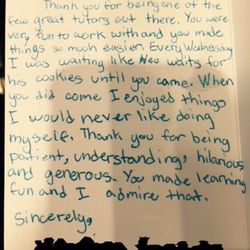 Thank you for being one of the
few great tutors out there. You were
very fun to work with and you made
things so much easier. Every Wednesday
I was waiting like Neo waits for
his cookies until you came. When
you did come I enjoyed things
I would never like doing
myself. Thank you for being
patient, understanding, hilarious,
and generous. You made learning
fun and I admire that.
Sincerely,